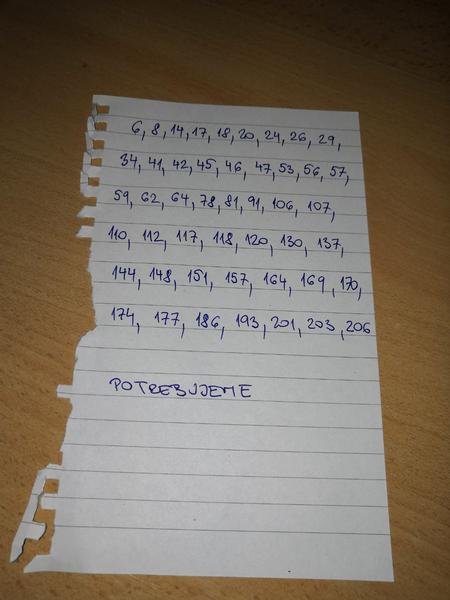 6, 8, 14, 17, 18, 20, 24, 26, 29,
34, 41, 42, 45, 46, 47, 53, 56, 57,
59, 62, 64, 78, 81, 91, 106, 107,
110, 112, 117, 118, 120, 130, 137,
144, 148, 151, 157, 164, 169, 170,
174, 177, 186, 193, 201, 203, 206
POTREBUJEME